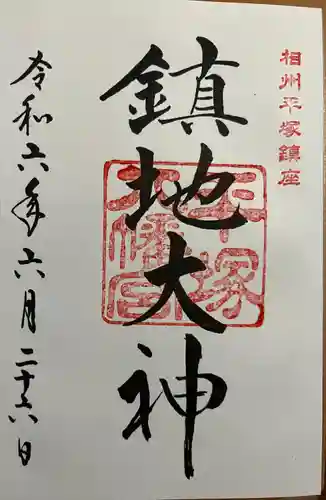 相州平塚鎮座
鎮地大神
平塚
八幡宮
令和六年六月二十六日